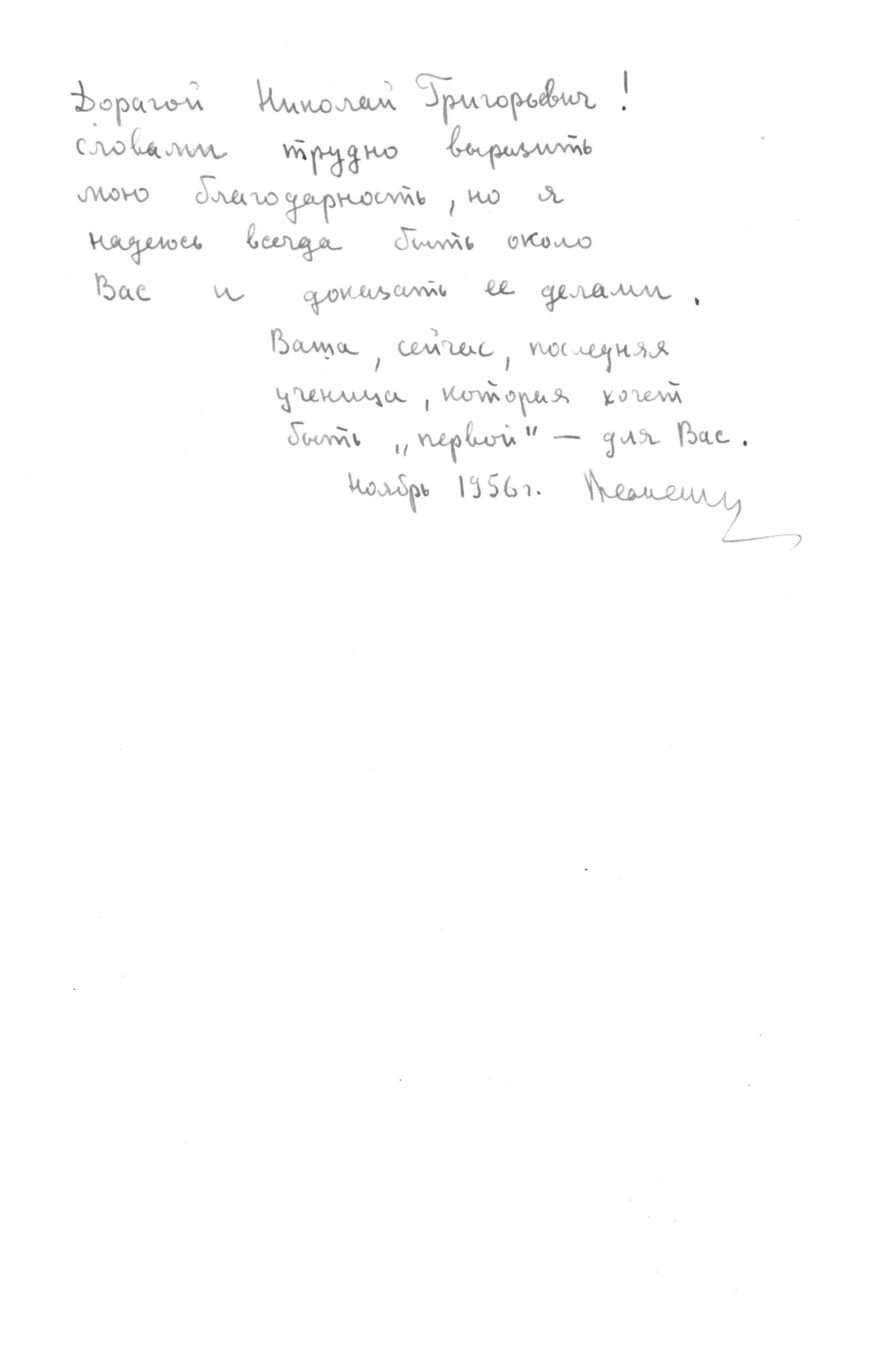 Дорагой Николай Григорьевич!
словами трудно выразить
мою благодарность, но я
надеюсь всегда быть около
Вас и доказать ее делами.
Ваша, сейчас, последняя
ученица, которая хочет
быть „первой" — для Вас.
Ноябрь 1956г.